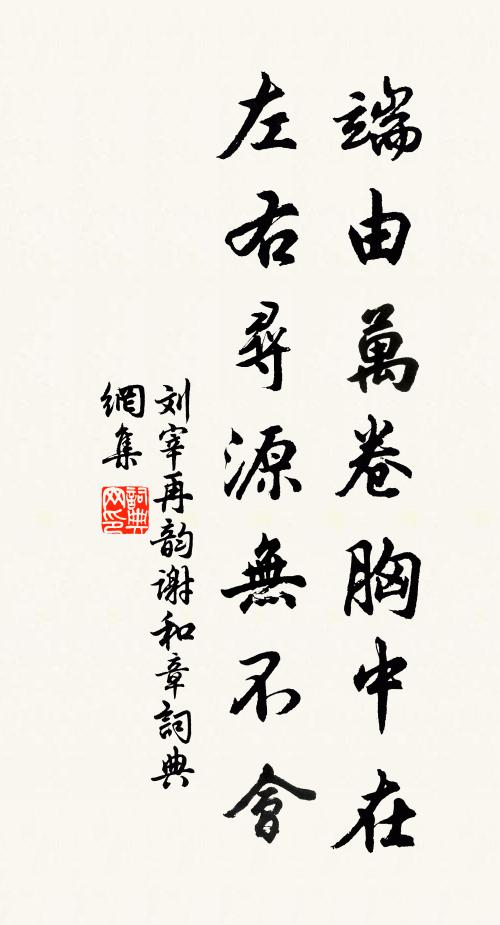 端由萬卷胸中在
左右尋源無不會
刘宰再韵谢和章詞典
網集
詞典
网印